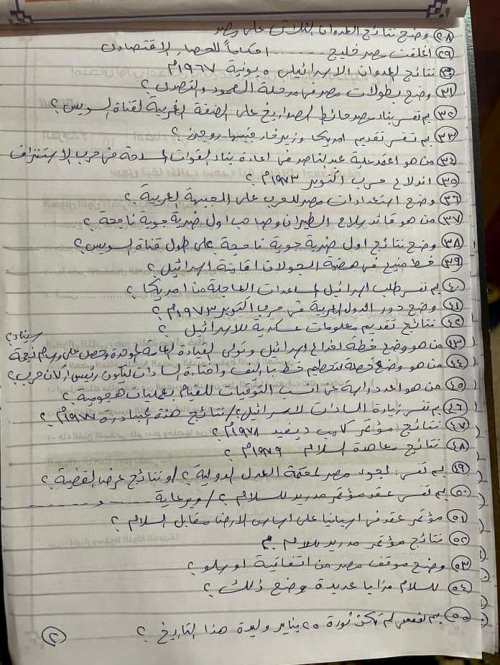 ٢٨) وضح نتائج العدوان الثلاثى على مصر
٢٩) أغلقت مصر خليج ........ إحكاماً للحصار الاقتصادى
٣٠) نتائج العدوان الإسرائيلى ٥ يونية ١٩٦٧م
٣١) وضح بطولات مصر فى مرحلة الصمود والتصدى؟
٣٢) بم تفسر بناء مصر حائط الصواريخ على الضفة الغربية لقناة السويس؟
٣٣) بم تفسر تقديم أمريكا وزير خارجيتها روجرز؟
٣٤) من هو اعتمد عليه عبد الناصر فى إعادة بناء القوات المسلحة فى حرب الاستنزاف
٣٥) اندلاع حرب أكتوبر ١٩٧٣م؟
٣٦) وضح استعدادات مصر للحرب على الجبهة الغربية؟
٣٧) من هو قائد سلاح الطيران وصاحب أول ضربة جوية ناجحة؟
٣٨) وضح نتائج أول ضربة جوية ناجحة على طول قناة السويس؟
٣٩) خط منيع فى هضبة الجولان أقامته إسرائيل؟
٤٠) بم تفسر طلب إسرائيل المساعدات العاجلة من أمريكا؟
٤١) وضح دور الدول العربية فى حرب أكتوبر ١٩٧٣م؟
٤٢) نتائج تقديم معلومات عسكرية للإسرائيل؟
٤٣) من هو وضع خطة لخداع إسرائيل وتولى القيادة العامة الموحدة وحصل على وسام نجمة سيناء؟
٤٤) من هو وضع خطة لتحطيم خط بارليف واختاره السادات ليكون رئيس أركان حرب؟
٤٥) من هو أعد دراسة عن أنسب التوقيتات للقيام بعمليات هجومية؟
٤٦) بم تفسر زيارة السادات للإسرائيل؟/ نتائج هذه المبادرة ١٩٧٧م؟
٤٧) نتائج مؤتمر كامب ديفيد ١٩٧٨م؟
٤٨) نتائج معاهدة السلام ١٩٧٩م؟
٤٩) بم تفسر لجوء مصر لمحكمة العدل الدولية؟/ أو نتائج عرض القضية؟
٥٠) بم تفسر عقد مؤتمر مدريد للسلام؟/ وبرعاية ........ و ........
٥١) مؤتمر عقد فى أسبانيا على أساس الأرض مقابل السلام؟
٥٢) نتائج مؤتمر مدريد للسلام؟
٥٣) وضح موقف مصر من اتفاقية أوسلو؟
٥٤) للسلام مزايا عديدة وضح ذلك؟
٥٥) بم تفسر لم تكن ثورة ٢٥ يناير وليدة هذا التاريخ؟
٢